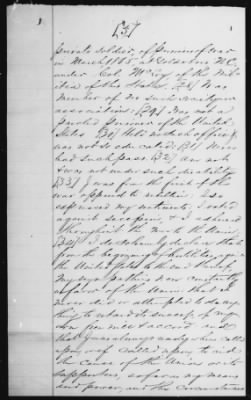 [3]
private soldier, of prisoners of war
in March 1865 at Goldsboro N.C.
under Col. McCoy of the Mi-
litia of the State. [28] Was
member of no such
association. [29] Was not a
paroled prisoner of the United
States [30] Held no such office &
was not so educated. [31] Never
had such pass. [32] Am not
& was not under such disability
[33] I was from the first & I
was opposed to
expressed my I voted
against secession, & I adhered
throughout the war to the Union,
[34] I do solemnly declare that
from the beginning of hostilities against
the United States to the end thereof
my sympathies were constantly
in favor of the Union; that I
never did or attempted to do any-
thing to retard its success of my
own free will & accord and
that I was always ready when called
upon, or if called upon to aid
the cause of the Union or its
supporters, so far as my means
and power, and the circumstances